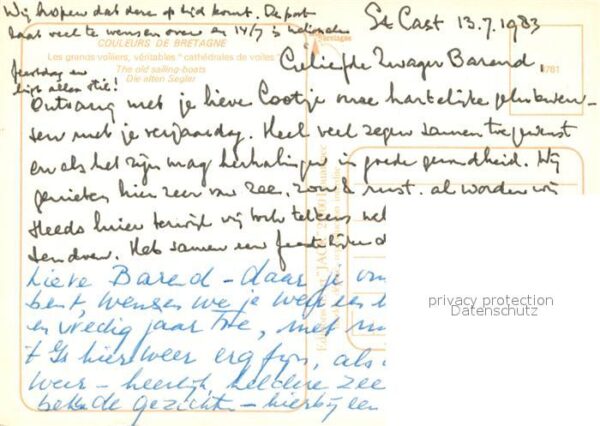 Wij hopen dat deze op tijd komt. De post
laat veel te wensen over en 14/7 is nationale
feestdag en
ligt alles stil!
St Cast 13.7.1983
COULEURS DE BRETAGNE
Les grands voiliers, véritables "cathédrales de voiles"
The old sailing-boats
Die alten Segler
Bretagne
Geliefde Zwager Barend,
Ontvang met je lieve Cootje onze hartelijke gelukwen-
sen met je verjaardag. Heel veel zegen samen toegewenst
en als het zijn mag herhalingen in goede gezondheid. Wij
genieten hier zeer van zee, zon & rust. al worden wij
steeds terwijl wij toch telkens
Heb samen een feestelijke d
Lieve Barend – daar je
bent, wensen we je weer een
en vredig jaar toe, met
't Is hier weer erg fijn, als
weer – heerlijk, heldere zee
bekende gezichten – hierbij een
"JACK"
privacy protection
Datenschutz